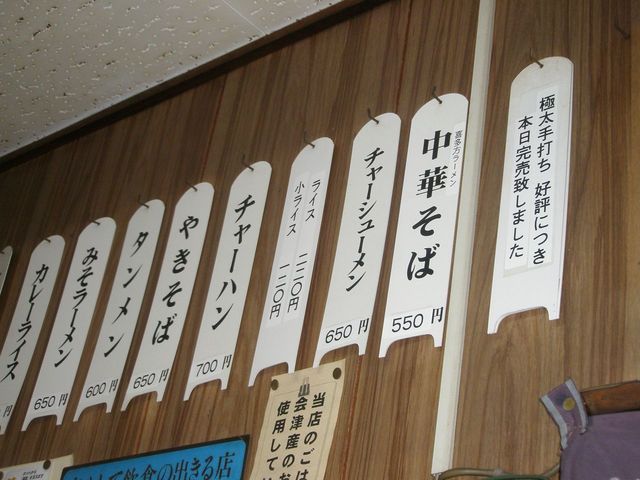 極太手打ち 好評につき
本日完売致しました
喜多方ラーメン
中華そば
550円
チャーシューメン
650円
ライス 二二〇円
小ライス 一二〇円
チャーハン
700円
やきそば
650円
タンメン
600円
みそラーメン
650円
カレーライス
当店のごは
会津産のお
使用して
飲食の出きる店